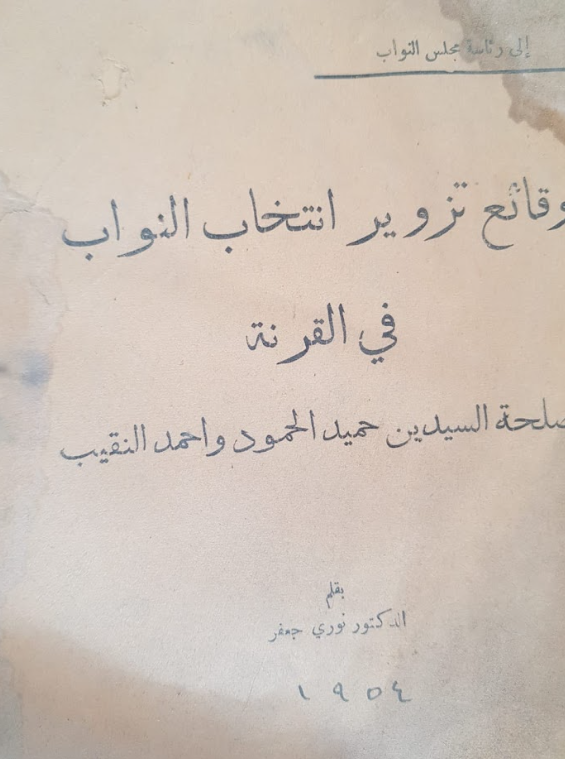 إلى رئاسة مجلس النواب
وقائع تزوير انتخاب النواب
في القرنة
صلحة السيدين حميد الحمود واحمد النقيب
بقلم
الدكتور نوري جعفر
١٩٥٤